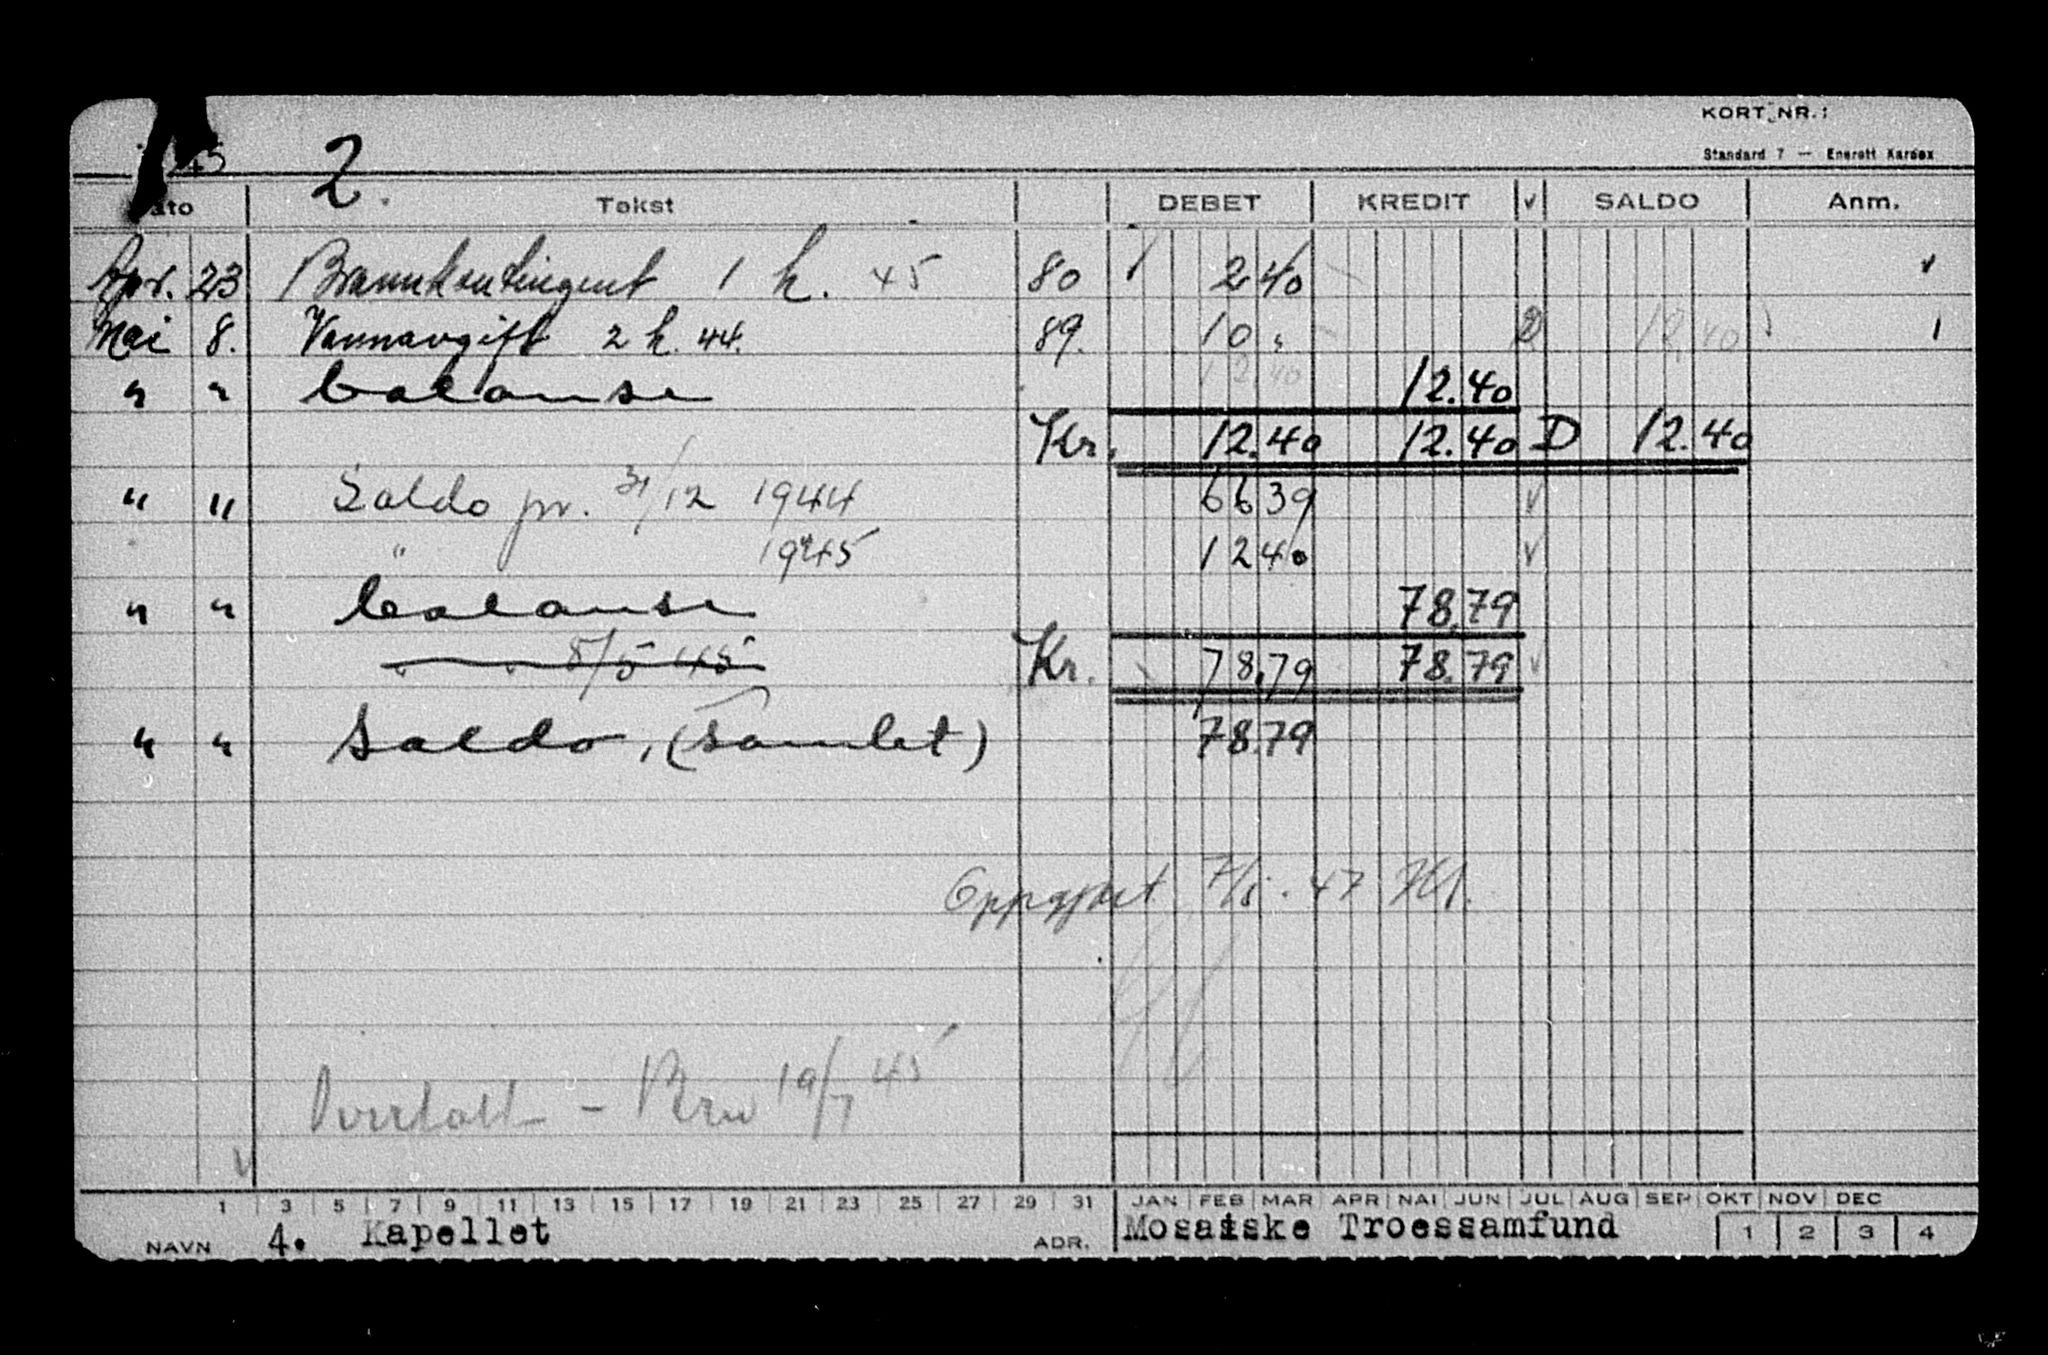 KORT NR.:
45 2. Standard 7 — Enerett Kardex
Dato Tekst DEBET KREDIT v SALDO Anm.
Apr. 23 Brannkontingent 1 h. 45 80 2 40
Mai 8. Vannavgift 2 h. 44. 89. 10 „ D 12.40
" " balanse 12.40 12.40
Kr. 12.40 12.40 D 12.40
" " Saldo pr. 31/12 1944 66 39 v
" 1945 12 40 v
" " balanse 78.79
8/5 45 Kr. 78.79 78.79 v
" " Saldo, (samlet) 78.79
Oppgjort 7/5. 47
19/7 45
v
1 3 5 7 9 11 13 15 17 19 21 23 25 27 29 31 JAN FEB MAR APR MAI JUN JUL AUG SEP OKT NOV DEC
NAVN 4. Kapellet ADR. Mosaiske Troessamfund 1 2 3 4